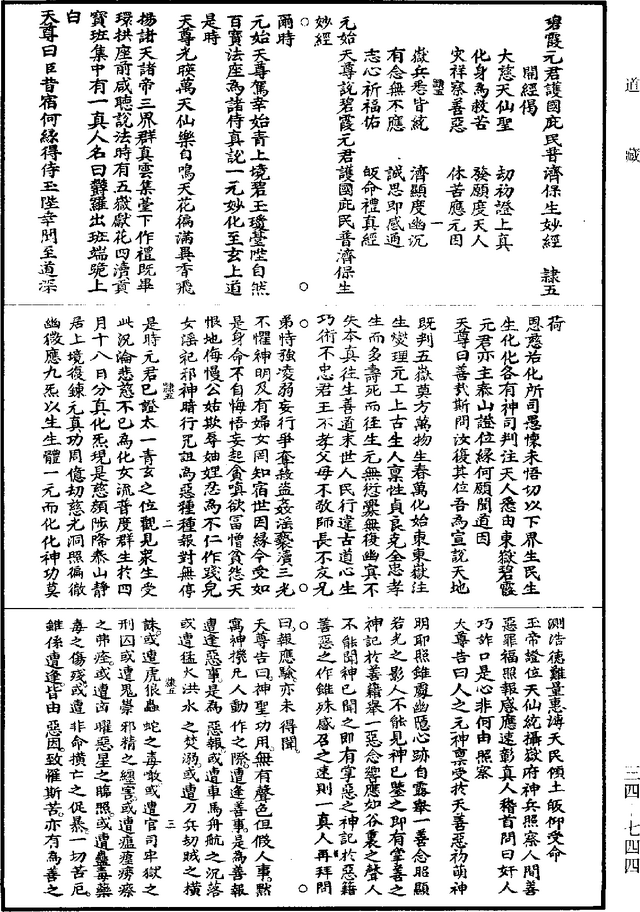 道藏
碧霞元君護國庇民普濟保生妙經 隸五
開經偈
大慈天仙聖 劫初證上真
化身為救苦 發願度天人
灾祥察善惡 休苦應元因
隸五 一
嶽兵悉皆統 濟顯度幽沉
有念無不應 誠思即感通
志心祈福佑 皈命禮真經
元始天尊說碧霞元君護國庇民普濟保生
妙經
爾時
元始天尊駕幸始青上境碧玉瓊臺陞自然
百寶法座為諸侍真說一元妙化至玄上道
是時
天尊光暎萬天仙樂自鳴天花徧滿異香飛
揚諸天諸帝三界群真雲集臺下作禮既畢
環拱座前咸聽說法時有五嶽獻花四瀆貢
寶班集中有一真人名曰欝羅出班端跪上
白
天尊曰臣昔宿何緣得侍玉陛幸聞至道深
荷
恩慈治化所司愚懷未悟切以下界生民生
生化化各有神司判注天人悉由東嶽碧霞
元君亦主泰山證位緣何願聞道因
天尊曰善哉斯問汝復其位吾為宣說天地
既判五嶽莫方萬物生春萬化始東東嶽注
生燮理元工上古生人禀性貞良克全忠孝
生而多壽死而往生元無愆釁無後幽冥不
失本真徃生善道末世人民行違古道心生
巧術不忠君王不孝父母不敬師長不友兄
弟恃強凌弱妄行爭奪殺盗姦滛褻瀆三光
不懼神明及有婦女罔知宿世因緣今受如
是身命不自悔悟妄起貪嗔欲冨憎貧怨天
恨地侮慢公姑欺辱妯娌忍為不仁作踐兒
女滛祀邪神時行咒詛為惡種種報對無停
隸五 二
是時元君已證太一青玄之位觀見衆生受
此沉淪悲慜不已為化女流普度群生於四
月十八日分真化炁現是慈顏陟降泰山静
居上境復鍊元真功周億劫慈光洞照徧徹
幽微應九炁以生生體一元而化化神功莫
測浩德難量惠溥天民傾土皈仰受命
玉帝證位天仙統攝嶽府神兵照察人間善
惡罪福照報感應速彰真人稽首問曰奸人
巧詐口是心非何由照察
天尊告曰人之元神禀受於天善惡初萌神
明耶照錐露幽隱心跡自露舉一善念昭顯
若光之影人不能見神已鑒之即有掌善之
神記於善籍舉一惡念響應如谷裏之聲人
不能聞神已聞之即有掌惡之神記於惡籍
善惡之作錐殊感召之速則一真人再拜問
曰報應驗亦未得聞
天尊告曰神聖功用無有聲色但假人事黙
寓神機凢人動作之際遭逢善事是為善報
遭逢惡事是為惡報或遭車馬舟航之沉落
或遭猛火洪水之焚溺或遭刀兵劫賊之横
隸五 三
誅或遭虎狼蟲蛇之毒啟或遭官司牢獄之
刑囚或遭鬼祟邪精之纏害或遭瘟㾮癆瘵
之痱痊或遭凶曜惡星之臨照或遭蠱毒藥
毒之傷殘或遭非命横亡之促暴一切苦厄
錐係遭逢皆由惡因致罹斯苦亦有為善之
三四·七四四